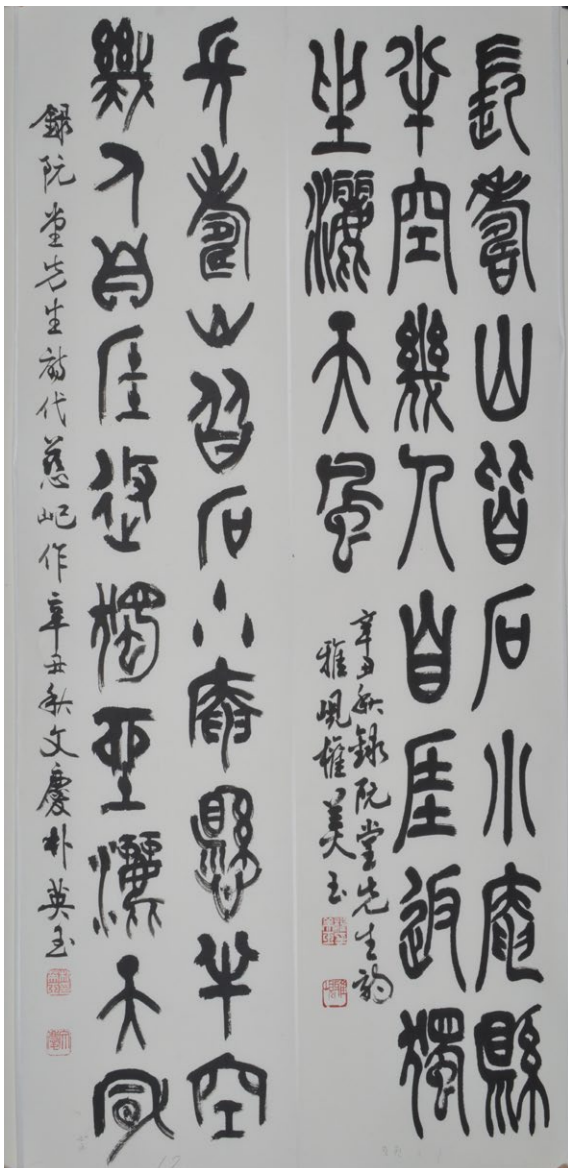 長壽山皆石小庵縣
半空幾人自厓返獨
坐灑天風
辛丑秋錄阮堂先生韵
雅峴權美玉
長壽山皆石小庵懸半空
幾人自厓返獨坐灑天風
錄阮堂先生詩代慈屺作辛丑秋文慶朴英玉